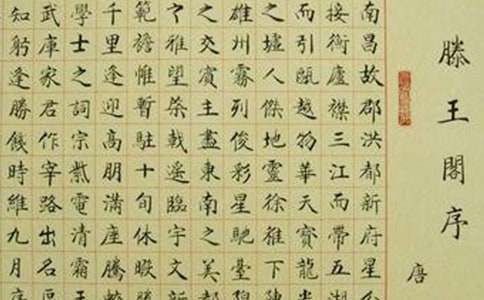 滕王閣序
唐
南昌故郡洪都新府星分
接衡廬襟三江而帶五湖
而引甌越物華天寶龍光
之墟人傑地靈徐孺下陳
雄州霧列俊彩星馳臺隍
之交賓主盡東南之美都
々雅望棨戟遙臨宇文新
範襜帷暫駐十旬休暇勝
千里逢迎高朋滿座騰蛟
學士之詞宗紫電清霜王
武庫家君作宰路出名區
知躬逢勝餞時維九月序